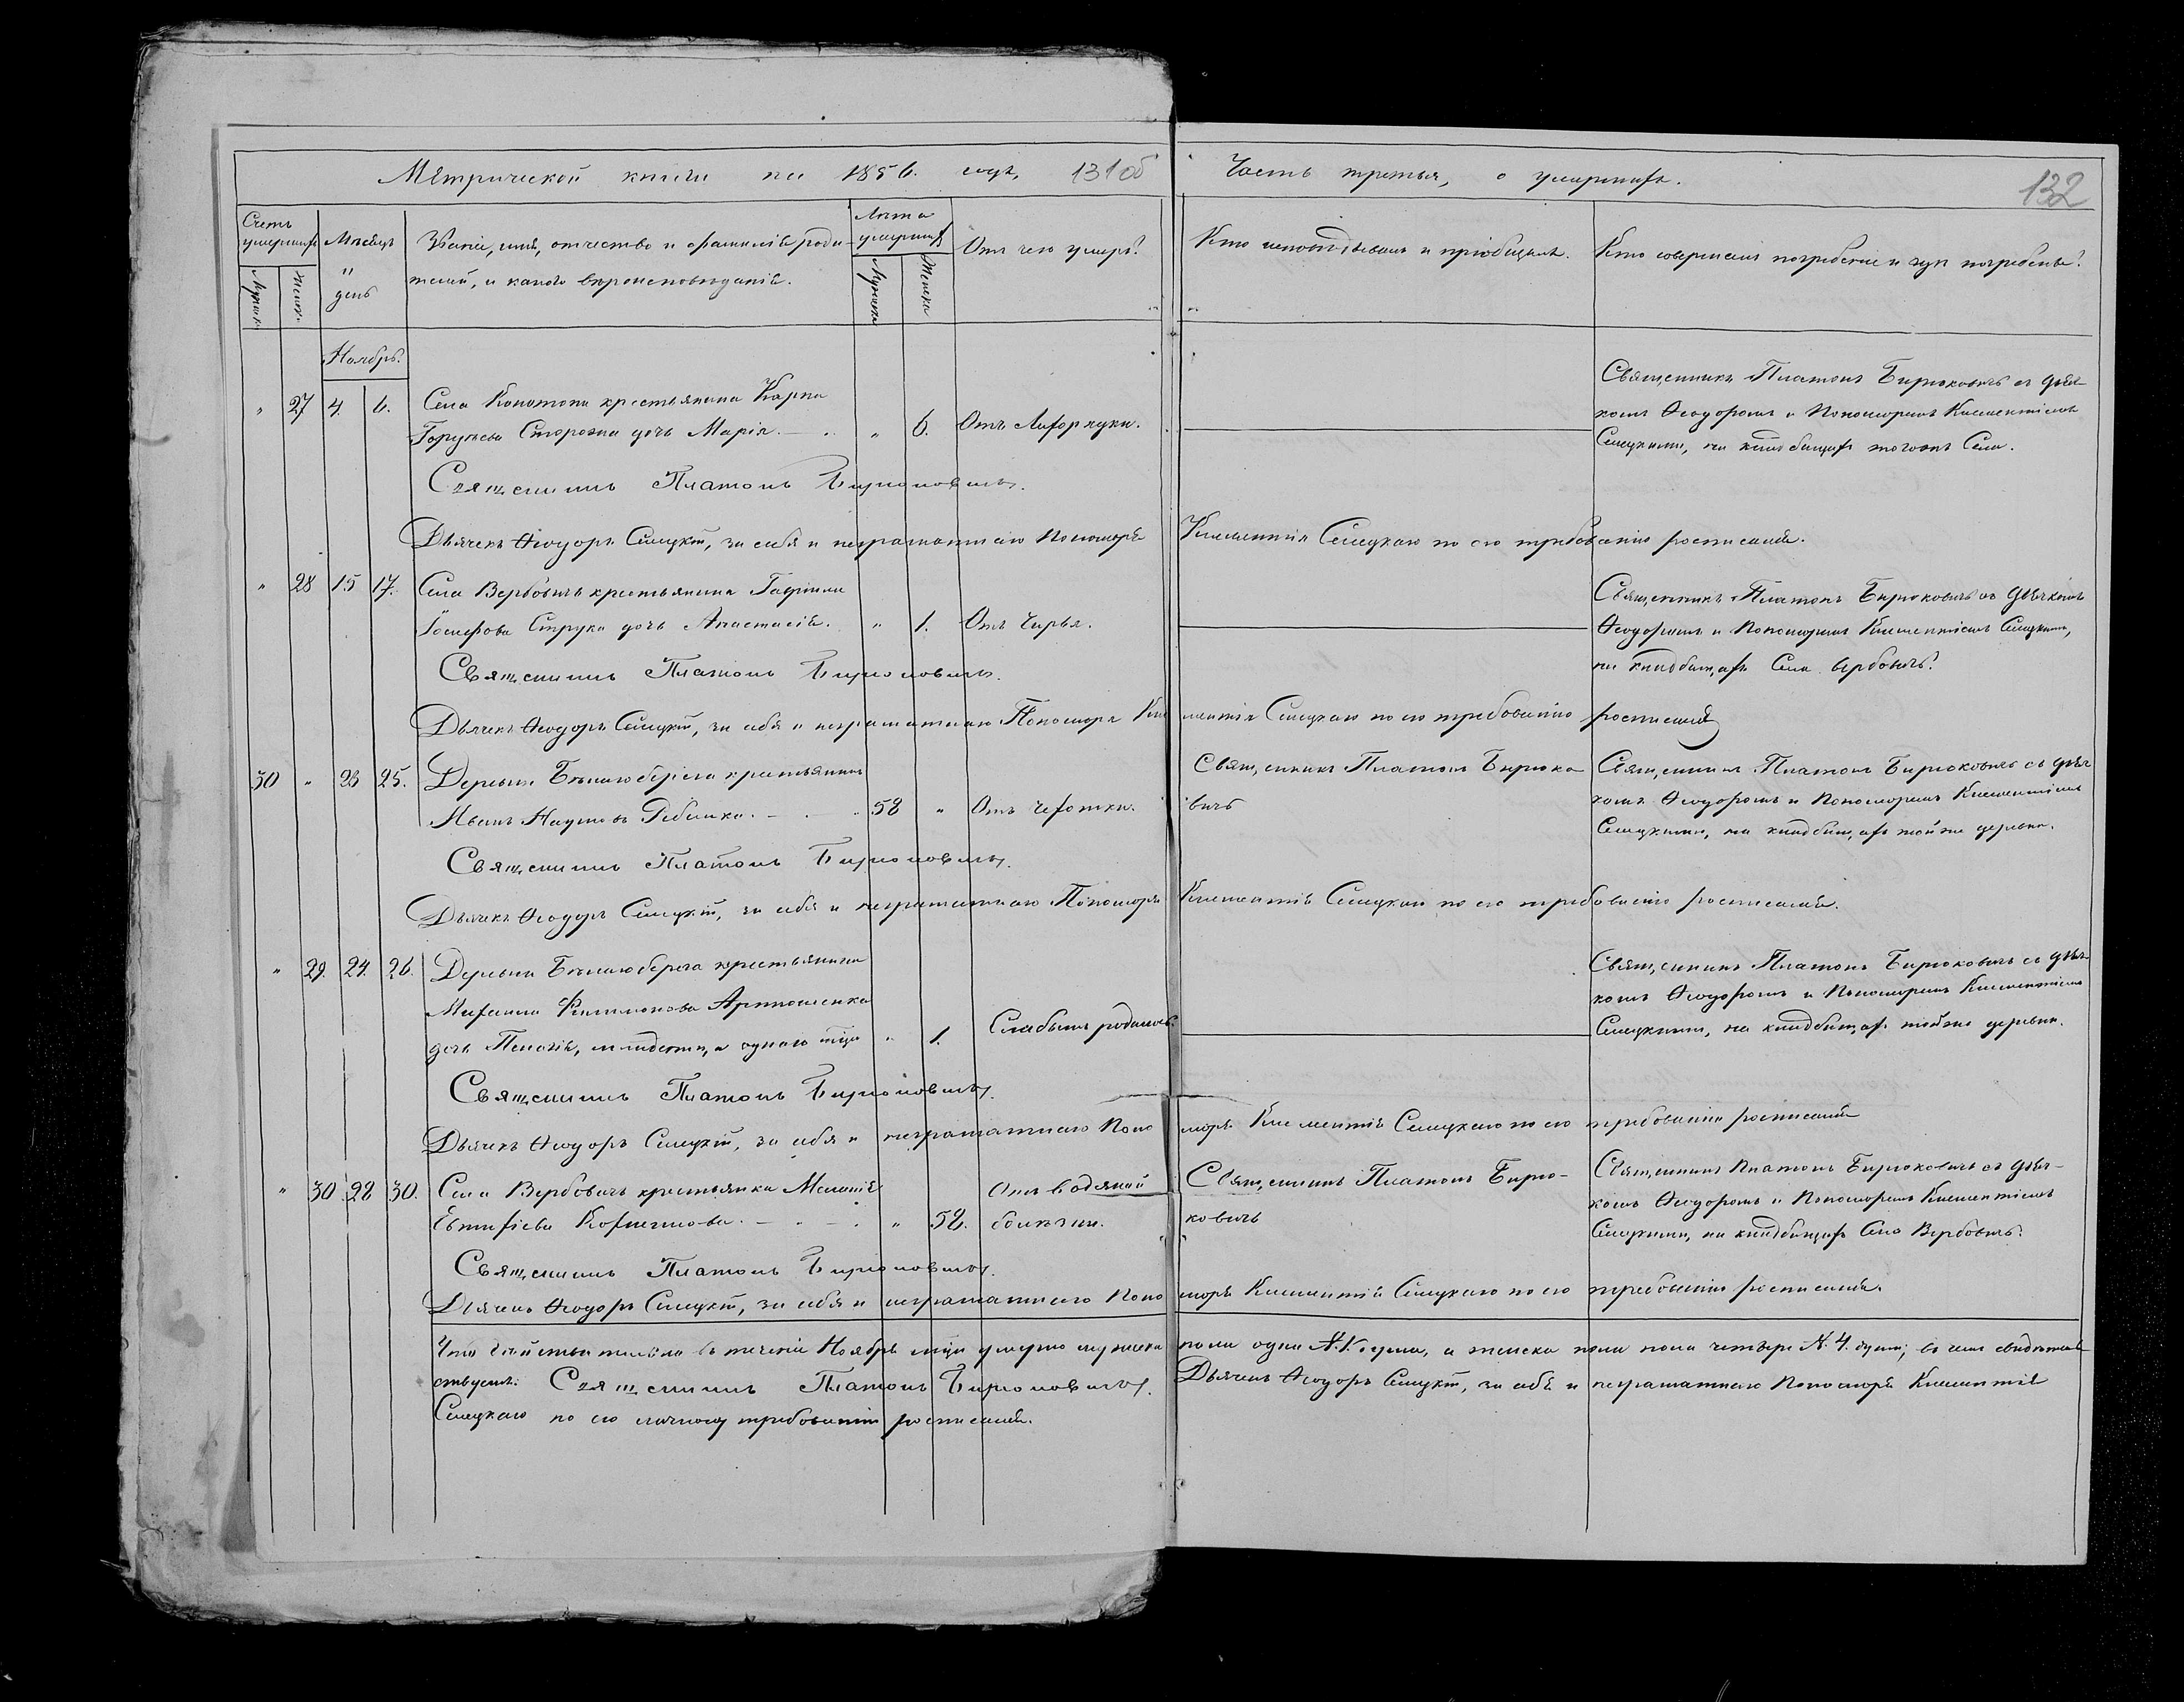 Метрической книги на 1856. годъ, 131об
Часть третья, о умершихъ.
132
Счетъ умершихъ
Мужск.
Женск.
Мѣсяцъ и день
Званіе, имя, отчество и фамилія роди-
телей, и какого вѣроисповѣданія.
Лѣта умершихъ
Мужска
Женска
Отъ чего умеръ?
Кто исповѣдывалъ и пріобщалъ.
Кто совершалъ погребеніе и гдѣ погребены?
Ноябрь.
" 27 4. 6. Села Конотопа крестьянина Карпа
Сторожка дочь Марія. " 6. Отъ лихорадки.
Священникъ Платонъ Бирюковичъ съ дьяч-
комъ Ѳеодоромъ и Пономоремъ Климентіемъ
Селецкими, на кладбищѣ тогожъ Села.
Священникъ Платонъ Бирюковичъ.
Дьячекъ Ѳеодоръ Селецкій, за себя и неграматнаго Пономоря Климентія Селецкаго по его требованію росписался.
" 28 15 17. Села Вербовичъ крестьянина Гавріила
Іосифова Струка дочь Анастасія. " 1. Отъ Чирья.
Священникъ Платонъ Бирюковичъ съ Дьячкомъ
Ѳеодоромъ и Пономоремъ Климентіемъ Селецкими,
на кладбищѣ Села Вербовичъ.
Священникъ Платонъ Бирюковичъ.
Дьячекъ Ѳеодоръ Селецкій, за себя и неграматнаго Пономоря Климентія Селецкаго по его требованію росписался
30 " 23 25. Деревни Бѣлаго берега крестьянинъ
Иванъ Наумовъ Рѣбенко. 58 " Отъ Чехотки.
Священникъ Платонъ Бирюко-
вичъ
Священникъ Платонъ Бирюковичъ съ дьяч-
комъ Ѳеодоромъ и Пономоремъ Климентіемъ
Селецкими, на кладбищѣ тойже деревни.
Священникъ Платонъ Бирюковичъ.
Дьячекъ Ѳеодоръ Селецкій, за себя и неграматнаго Пономоря Климентія Селецкаго по его требованію росписался.
" 29. 24. 26. Деревни Бѣлаго берега крестьянина
Михаила Филимонова Артюшенка
дочь Пелагія, младенецъ одного мѣсяца " 1. Слабымъ родилась.
Священникъ Платонъ Бирюковичъ съ дьяч-
комъ Ѳеодоромъ и Пономоремъ Климентіемъ
Селецкими, на кладбищѣ тойже деревни.
Священникъ Платонъ Бирюковичъ.
Дьячекъ Ѳеодоръ Селецкій, за себя и неграматнаго Пономоря Климентія Селецкаго по его требованію росписался
" 30 28 30. Села Вербовичъ крестьянка Меланія
Евтихіева " 52. Отъ водяной
болѣзни.
Священникъ Платонъ Бирю-
ковичъ
Священникъ Платонъ Бирюковичъ съ дьяч-
комъ Ѳеодоромъ и Пономоремъ Климентіемъ
Селецкими, на кладбищѣ Села Вербовичъ.
Священникъ Платонъ Бирюковичъ.
Дьячекъ Ѳеодоръ Селецкій, за себя и неграматнаго Пономоря Климентія Селецкаго по его требованію росписался.
Что дѣйствительно въ теченіи Ноября мѣсяца умерло мужеска пола одна №.1. душа, а женска пола пола четыре №.4. души; въ чемъ свидѣтель-
ствуемъ: Священникъ Платонъ Бирюковичъ. Дьячекъ Ѳеодоръ Селецкій, за себя и неграматнаго Пономоря Климентія
Селецкаго по его личному требованію росписался.